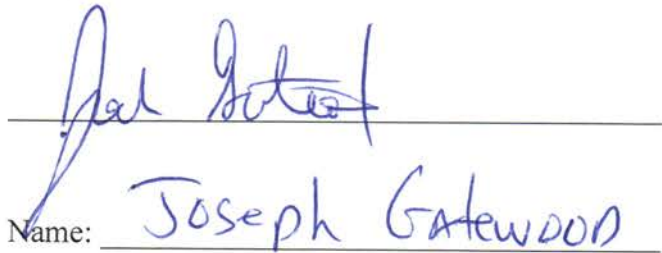 Name: Joseph Gatewood